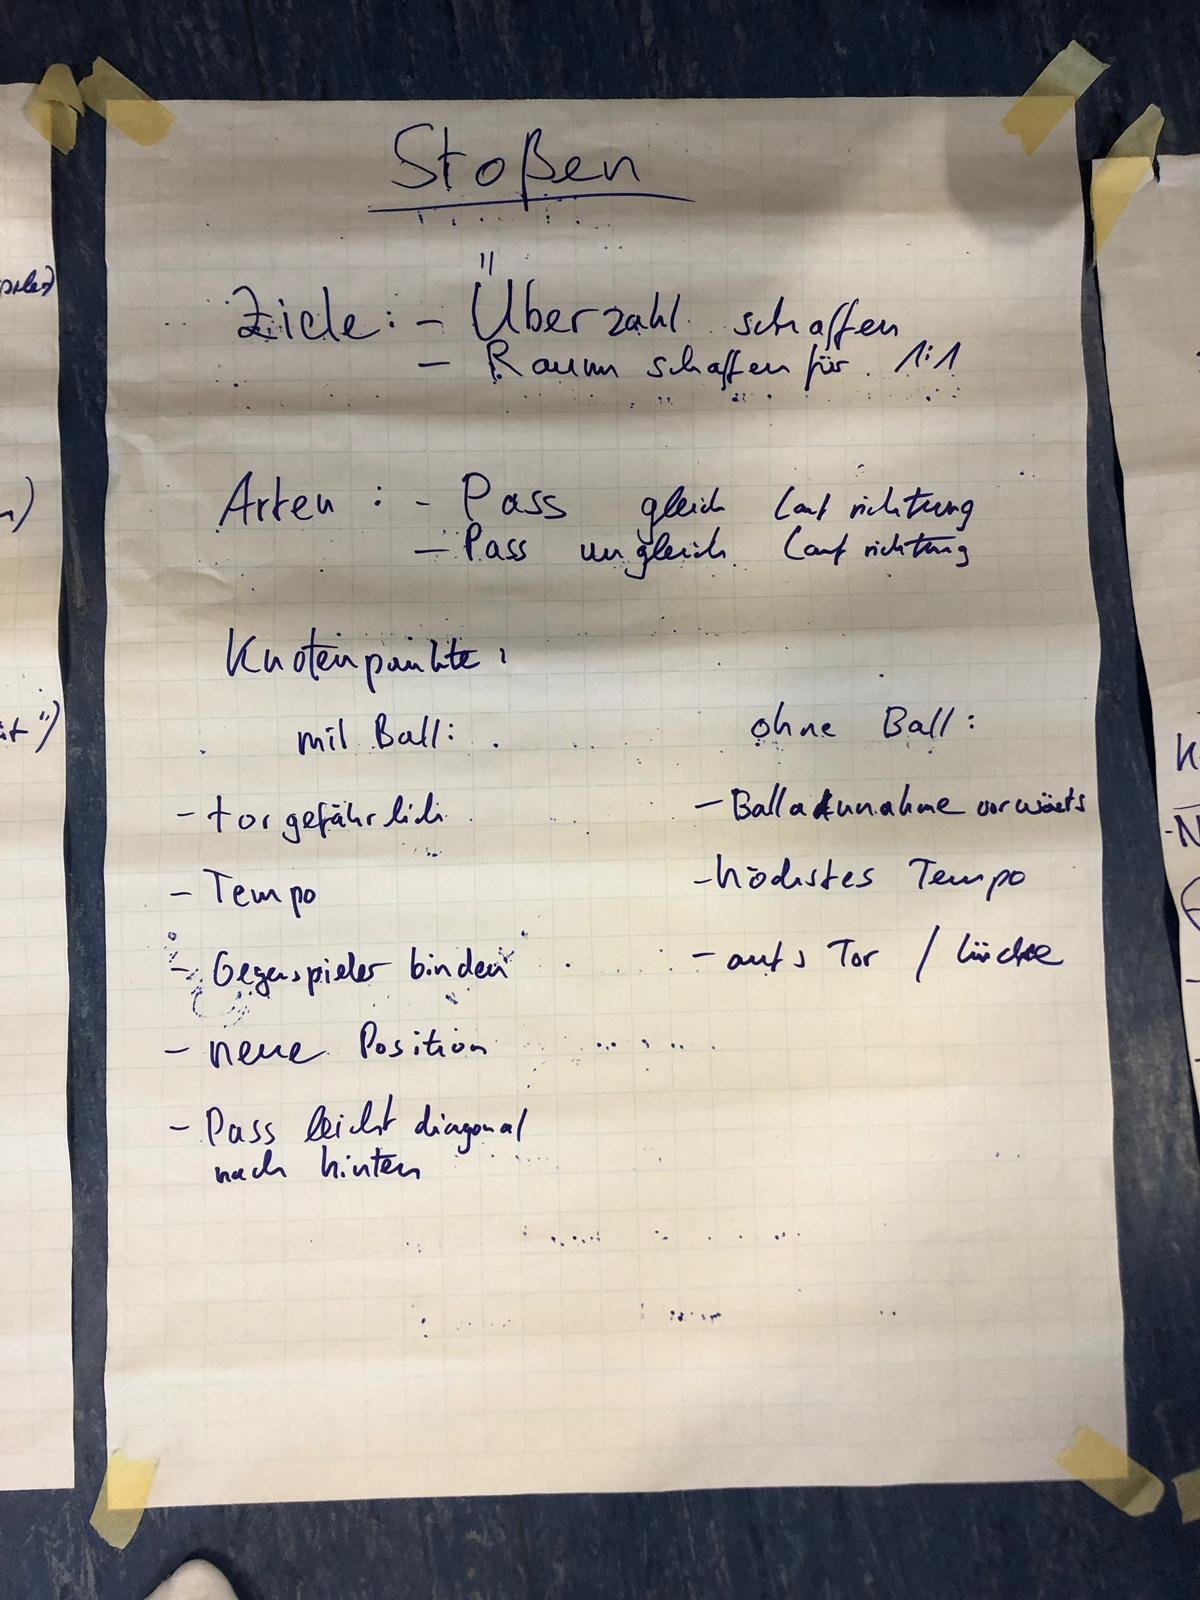 Stoßen
Ziele: - Überzahl schaffen
- Raum schaffen für 1:1
Arten: - Pass gleich Laufrichtung
- Pass ungleich Laufrichtung
Knotenpunkte:
mit Ball:
- torgefährlich
- Tempo
- Gegenspieler binden
- neue Position
- Pass leicht diagonal
nach hinten
ohne Ball:
- Ballannahme vorwärts
- höchstes Tempo
- aufs Tor / Lücke